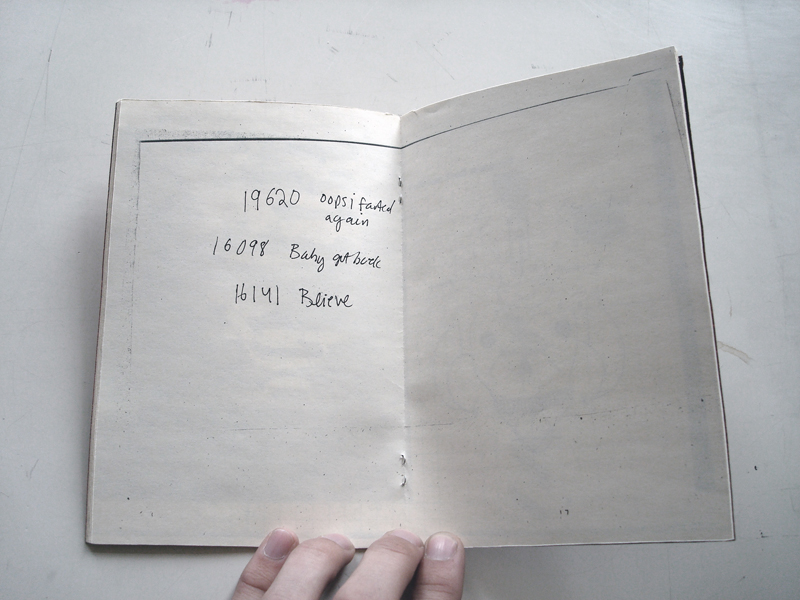 19620 oops i farted
again
16098 Baby got back
16141 Believe